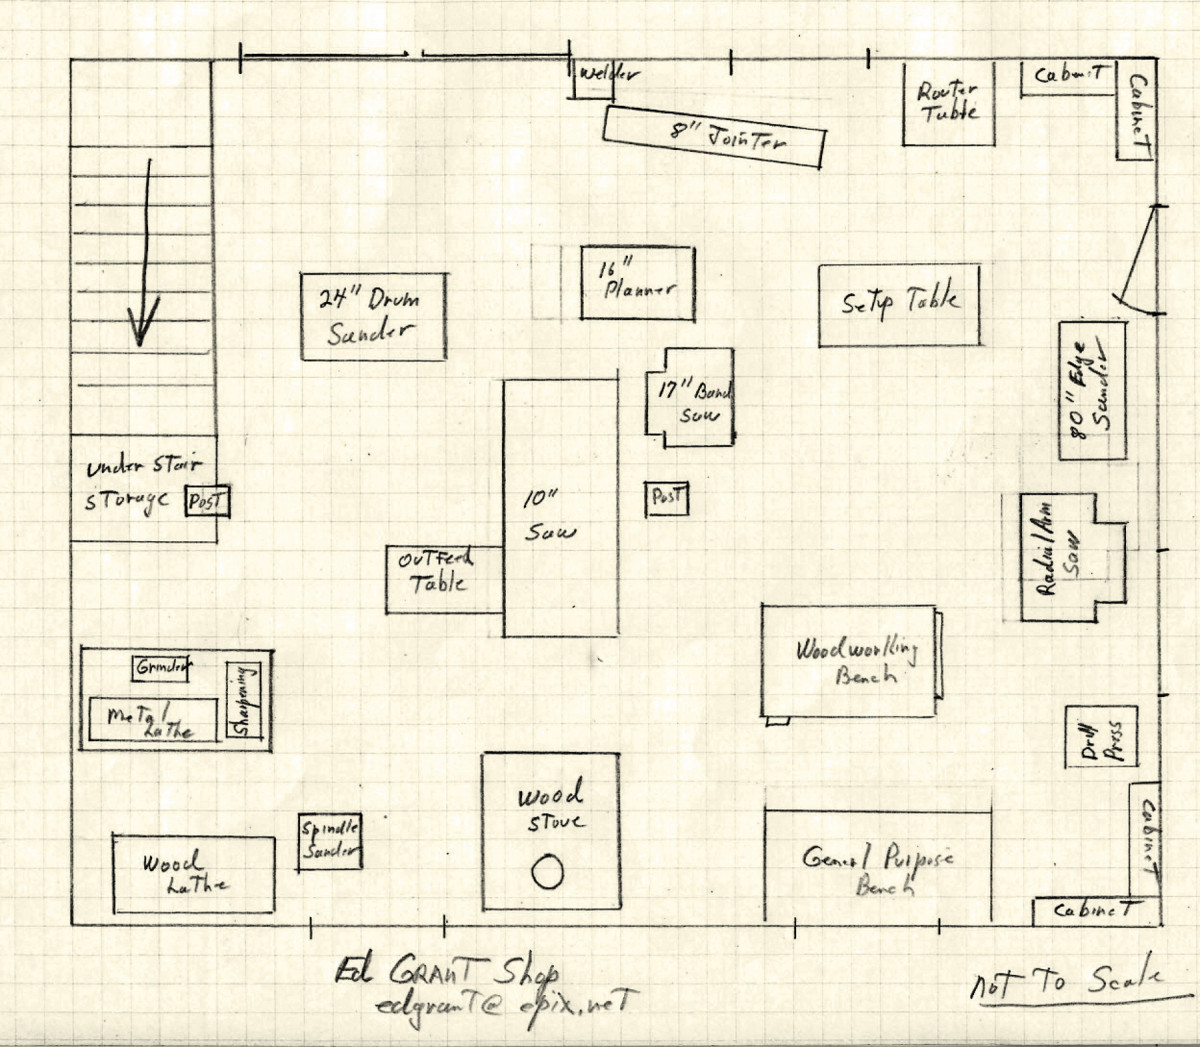 Welder
8" Jointer
Router
Table
Cabinet
Cabinet
24" Drum
Sander
16"
Planner
Setup Table
80" Edge
Sander
17" Band
Saw
Under Stair
Storage
Post
10"
Saw
Post
Outfeed
Table
Radial Arm
Saw
Woodworking
Bench
Grinder
Metal
Lathe
Sharpening
Drill
Press
Wood
Stove
Spindle
Sander
Wood
Lathe
Generl Purpose
Bench
Cabinet
Cabinet
Ed Grant Shop
edgrant@epix.net
Not To Scale